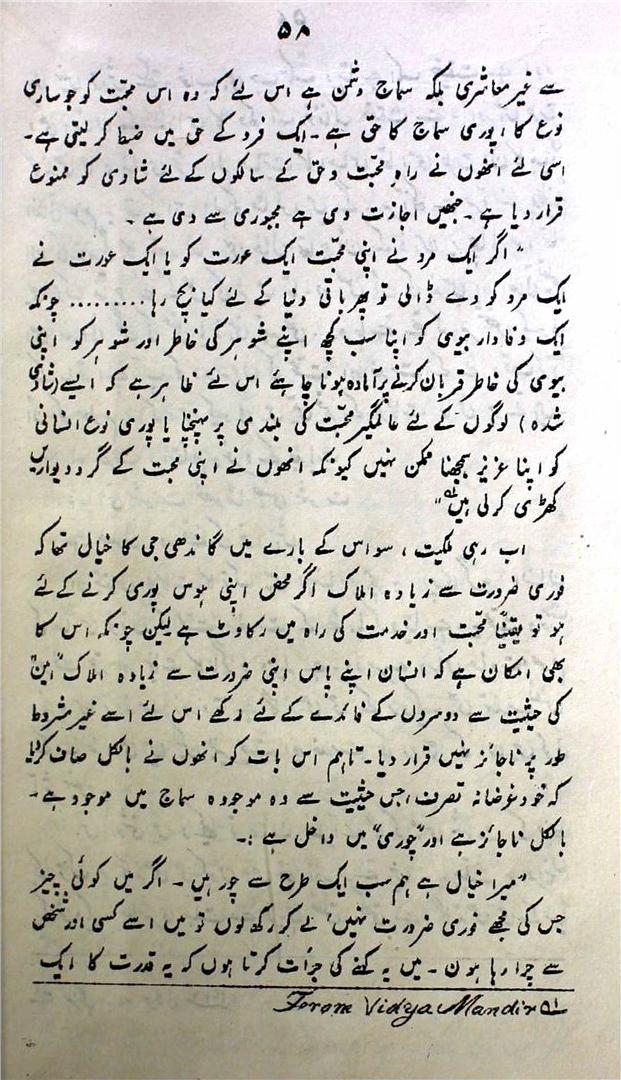 ۵۸
سے غیر معاشری بلکہ سماج دشمن ہے اس لئے کہ وہ اس محبت کو جو ساری
نوع کا، پوری سماج کا حق ہے۔ ایک فرد کے حق میں ضبط کر لیتی ہے۔
اسی لئے انھوں نے راہِ محبّت وحق کے سالکوں کے لئے شادی کو ممنوع
قرار دیا ہے۔ جنھیں اجازت دی ہے مجبوری سے دی ہے ۔
"اگر ایک مرد نے اپنی محبت ایک عورت کو یا ایک عورت نے
ایک مرد کو دے ڈالی تو پھر باقی دنیا کے لئے کیا بچ رہا ......... چونکہ
ایک وفادار بیوی کو اپنا سب کچھ اپنے شوہر کی خاطر اور شوہر کو اپنی
بیوی کی خاطر قربان کرنے پر آمادہ ہونا چاہئے اس لئے ظاہر ہے کہ ایسے (شادی
شدہ) لوگوں کے لئے عالمگیر محبّت کی بلندی پر پہنچنا یا پوری نوع انسانی
کو اپنا عزیز سمجھنا ممکن نہیں کیونکہ انھوں نے اپنی محبت کے گرد دیواریں
کھڑی کر لی ہیں"۱؎
اب رہی ملکیت، سو اس کے بارے میں گاندھی جی کا خیال تھا کہ
فوری ضرورت سے زیادہ املاک اگر محض اپنی ہوس پوری کرنے کے لئے
ہو تو یقیناً محبت اور خدمت کی راہ میں رکاوٹ ہے لیکن چونکہ اس کا
بھی امکان ہے کہ انسان اپنے پاس اپنی ضرورت سے زیادہ املاک "امین"
کی حیثیت سے دوسروں کے فائدے کے لئے رکھے اس لئے اسے غیر مشروط
طور پر ناجائز نہیں قرار دیا۔ تاہم اس بات کو انھوں نے بالکل صاف کر دیا
کہ خود غرضانہ تصرف، جس حیثیت سے وہ موجودہ سماج میں موجود ہے۔
بالکل ناجائز ہے اور "چوری" میں داخل ہے :۔
"میرا خیال ہے ہم سب ایک طرح سے چور ہیں ۔ اگر میں کوئی چیز
جس کی مجھے فوری ضرورت نہیں، لے کر رکھ لوں تو میں اسے کسی اور شخص
سے چرا رہا ہون ۔ میں یہ کہنے کی جرأت کرتا ہوں کہ یہ قدرت کا ایک
۱؎ From Vidya Mandir